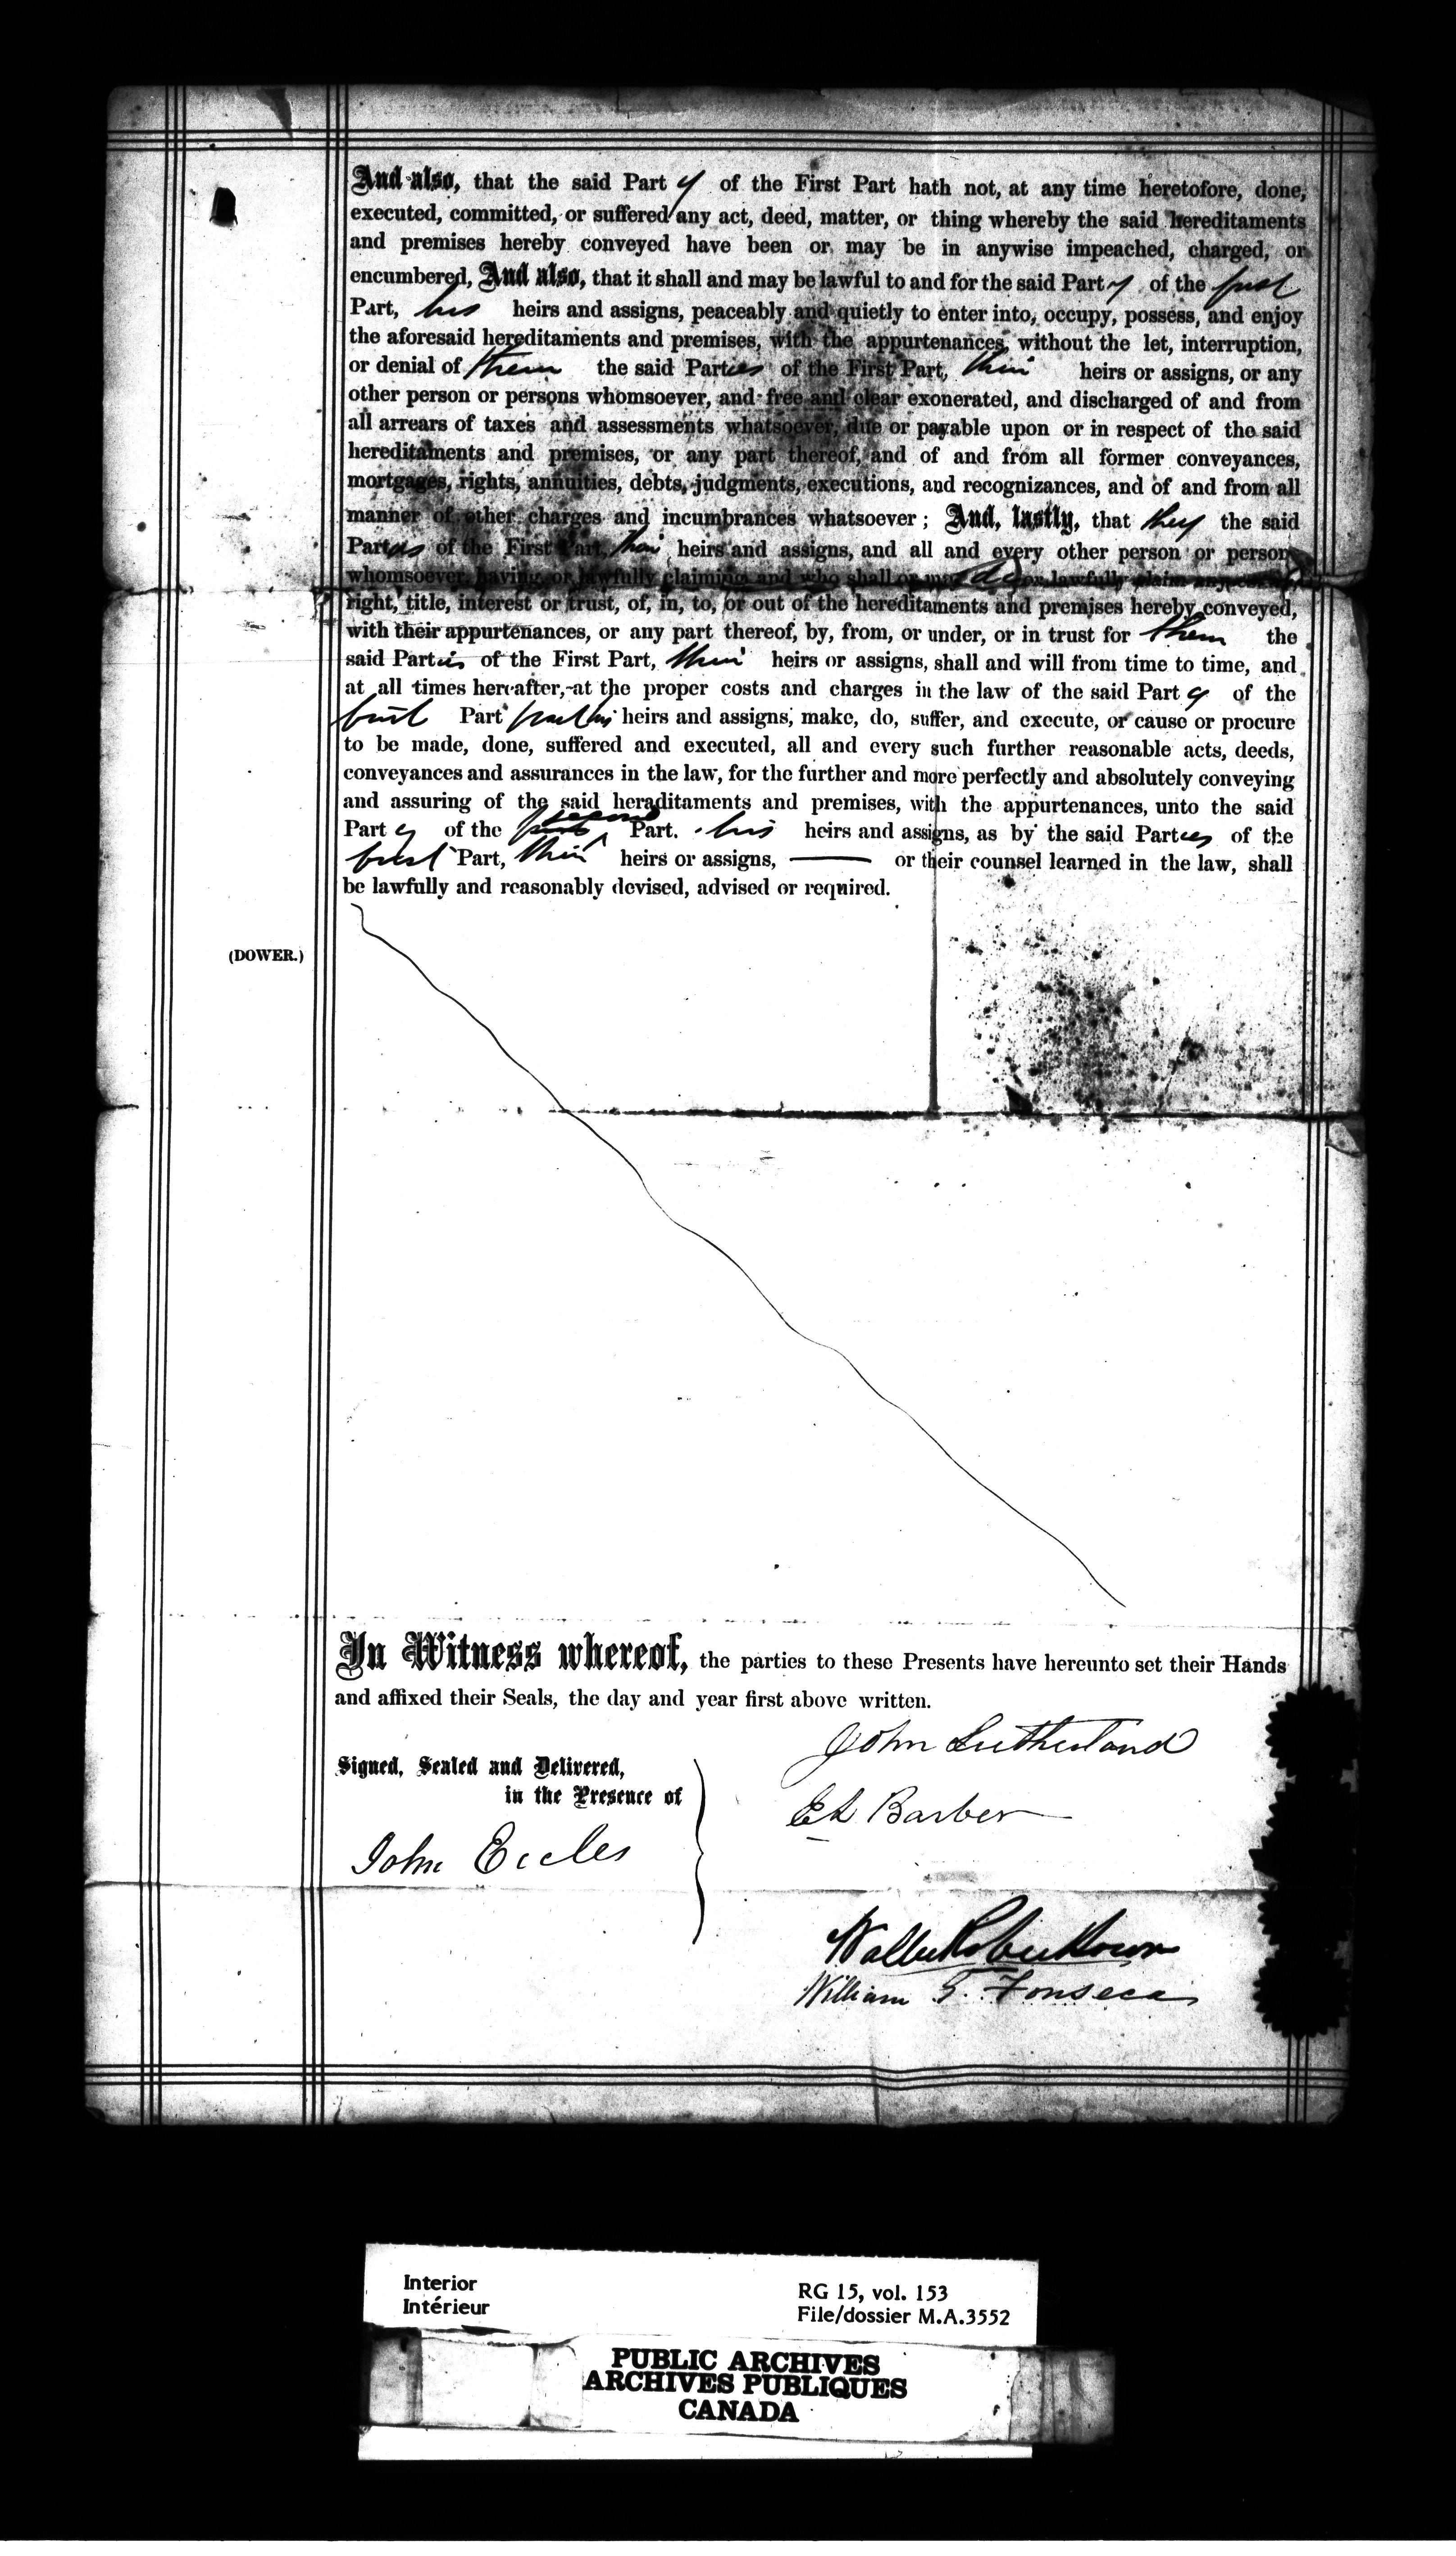 And also, that the said Party of the First Part hath not, at any time heretofore, done,
executed, committed, or suffered any act, deed, matter, or thing whereby the said hereditaments
and premises hereby conveyed have been or may be in anywise impeached, charged, or
encumbered, And also, that it shall and may be lawful to and for the said Party of the first
Part, his heirs and assigns, peaceably and quietly to enter into, occupy, possess, and enjoy
the aforesaid hereditaments and premises, with the appurtenances, without the let, interruption,
or denial of them the said Parties of the First Part, their heirs or assigns, or any
other person or persons whomsoever, and free and clear exonerated, and discharged of and from
all arrears of taxes and assessments whatsoever, due or payable upon or in respect of the said
hereditaments and premises, or any part thereof, and of and from all former conveyances,
mortgages, rights, annuities, debts, judgments, executions, and recognizances, and of and from all
manner of other charges and incumbrances whatsoever; And, lastly, that they the said
Parties of the First Part, their heirs and assigns, and all and every other person or persons
whomsoever, having or lawfully claiming and who shall or may do or lawfully claim any
right, title, interest or trust, of, in, to, or out of the hereditaments and premises hereby conveyed,
with their appurtenances, or any part thereof, by, from, or under, or in trust for them the
said Parties of the First Part, their heirs or assigns, shall and will from time to time, and
at all times hereafter, at the proper costs and charges in the law of the said Party of the
first Part his heirs and assigns, make, do, suffer, and execute, or cause or procure
to be made, done, suffered and executed, all and every such further reasonable acts, deeds,
conveyances and assurances in the law, for the further and more perfectly and absolutely conveying
and assuring of the said heraditaments and premises, with the appurtenances, unto the said
Party of the second Part. his heirs and assigns, as by the said Parties of the
first Part, their heirs or assigns, or their counsel learned in the law, shall
be lawfully and reasonably devised, advised or required.
(DOWER.)
In Witness whereof, the parties to these Presents have hereunto set their Hands
and affixed their Seals, the day and year first above written.
John Sutherland
Signed, Sealed and Delivered,
in the Presence of
E L Barber
John Eccles
William G. Fonseca
Interior
Intérieur
RG 15, vol. 153
File/dossier M.A.3552
PUBLIC ARCHIVES
ARCHIVES PUBLIQUES
CANADA